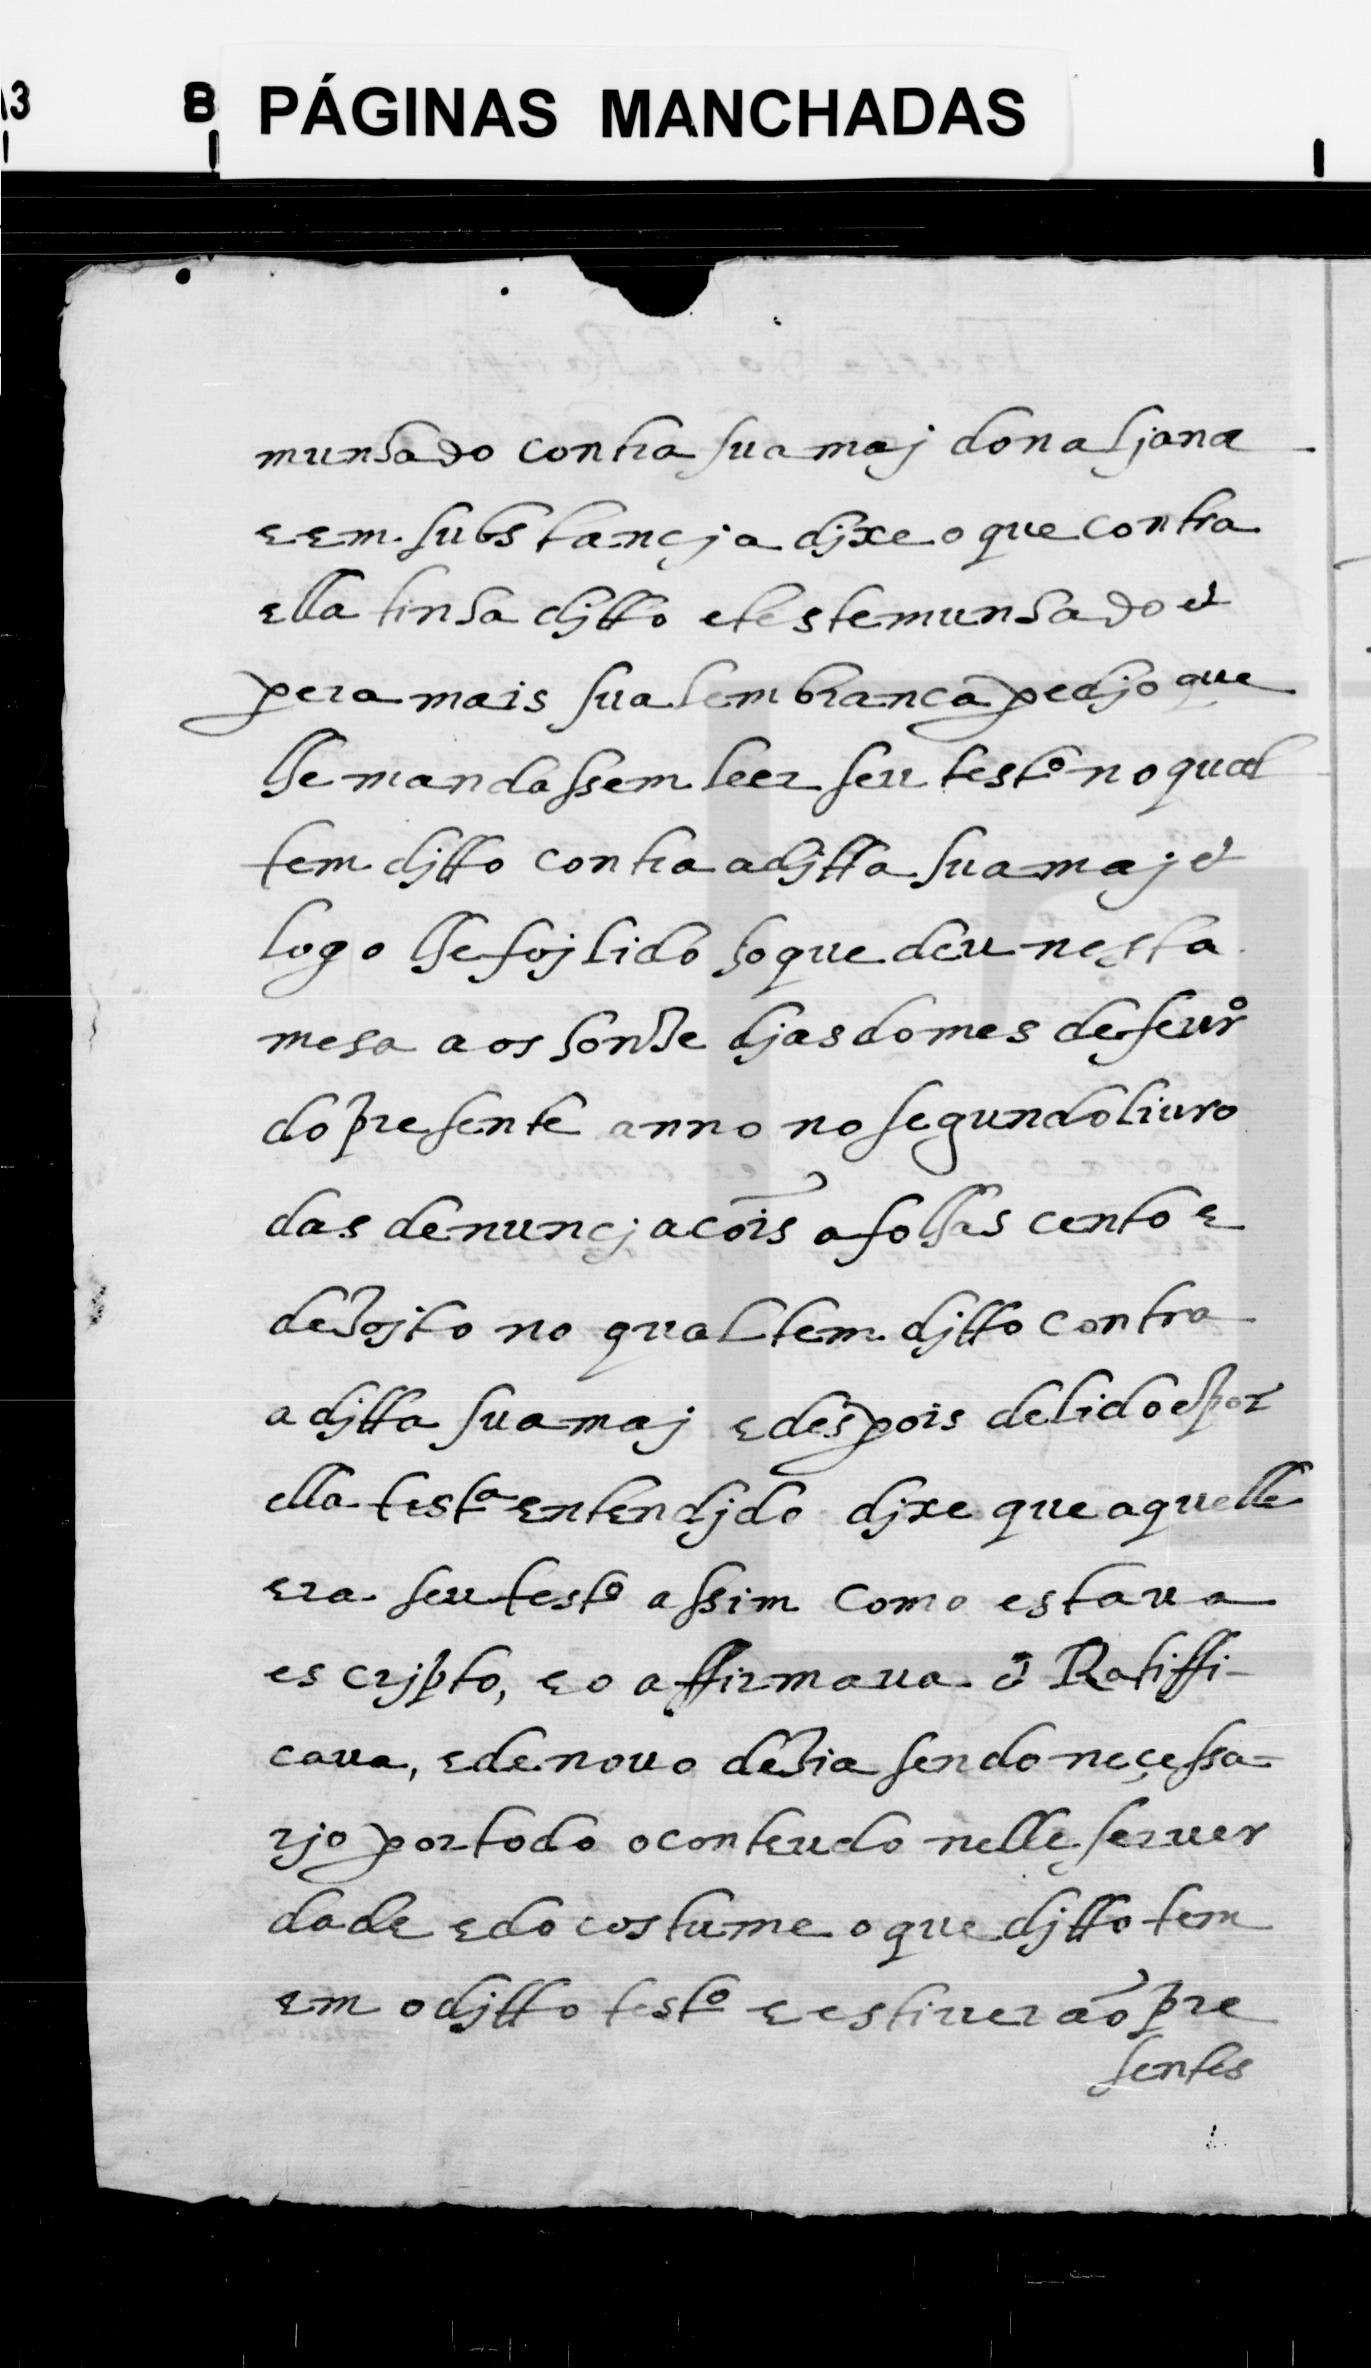 13 8 PÁGINAS MANCHADAS
munhado contra sua maj dona ljana
e em substançja djxe o que contra
ella tinha djtto e testemunhado et
pera mais sua lembranca pedjo que
lhe mandassem leer seu testo no qual
tem djtto contra a djtta sua maj et
logo lhe foj lido ho que deu nesta
mesa aos honze djas do mes de feuro
do presente anno no segundo liuro
das denuncjacõis a folhas cento e
dezojto no qual tem djtto contra
a djtta sua maj e despois de lido et por
ella testa entendjdo djxe que aquelle
era seu testo assim como estaua
escrjpto, e o affirmaua et Ratiffi-
caua, e de nouo dezia sendo neçessa-
rjo por todo o conteudo nelle ser uer
dade e do costume o que djtto tem
em o djtto testo e estiuerão pre
sentes